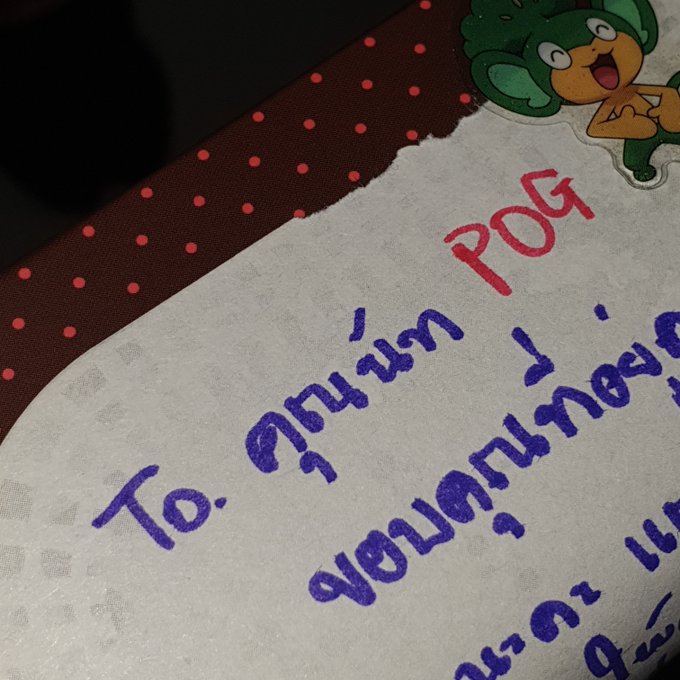 POG
To. คุณนัท
ขอบคุณที่อยู่
นะคะ